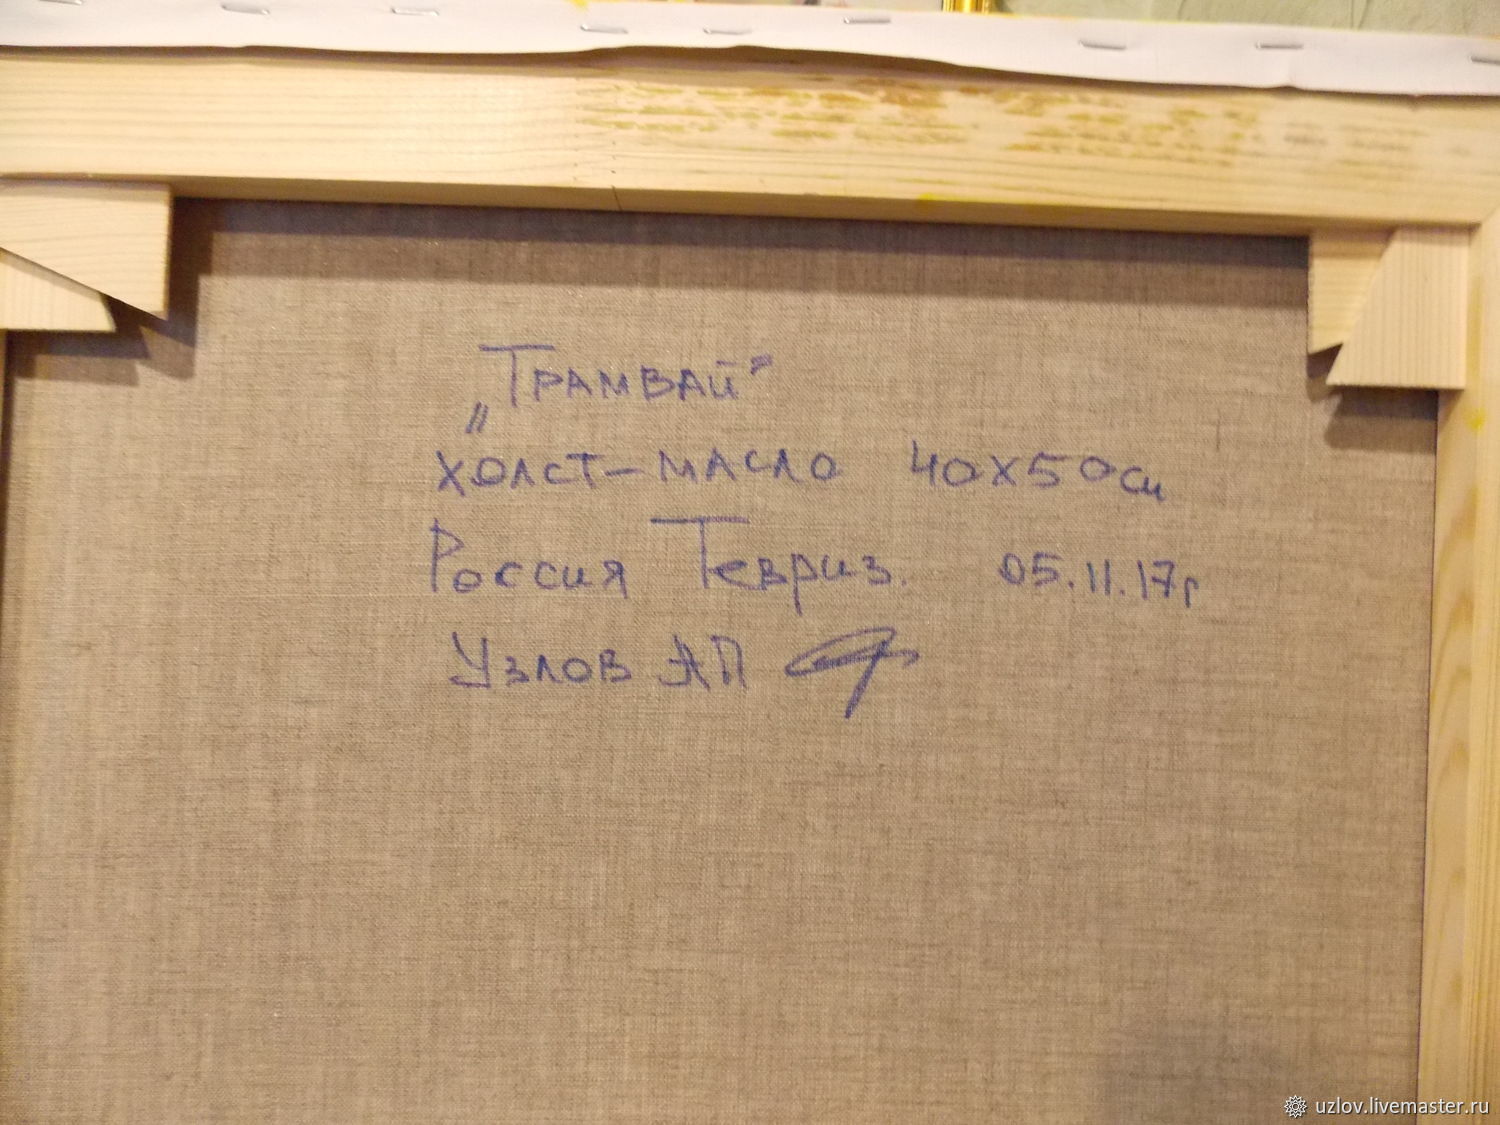 „Трамвай"
холст-масло 40х50см
Россия Тевриз. 05.11.17г
Узлов АП
uzlov.livemaster.ru